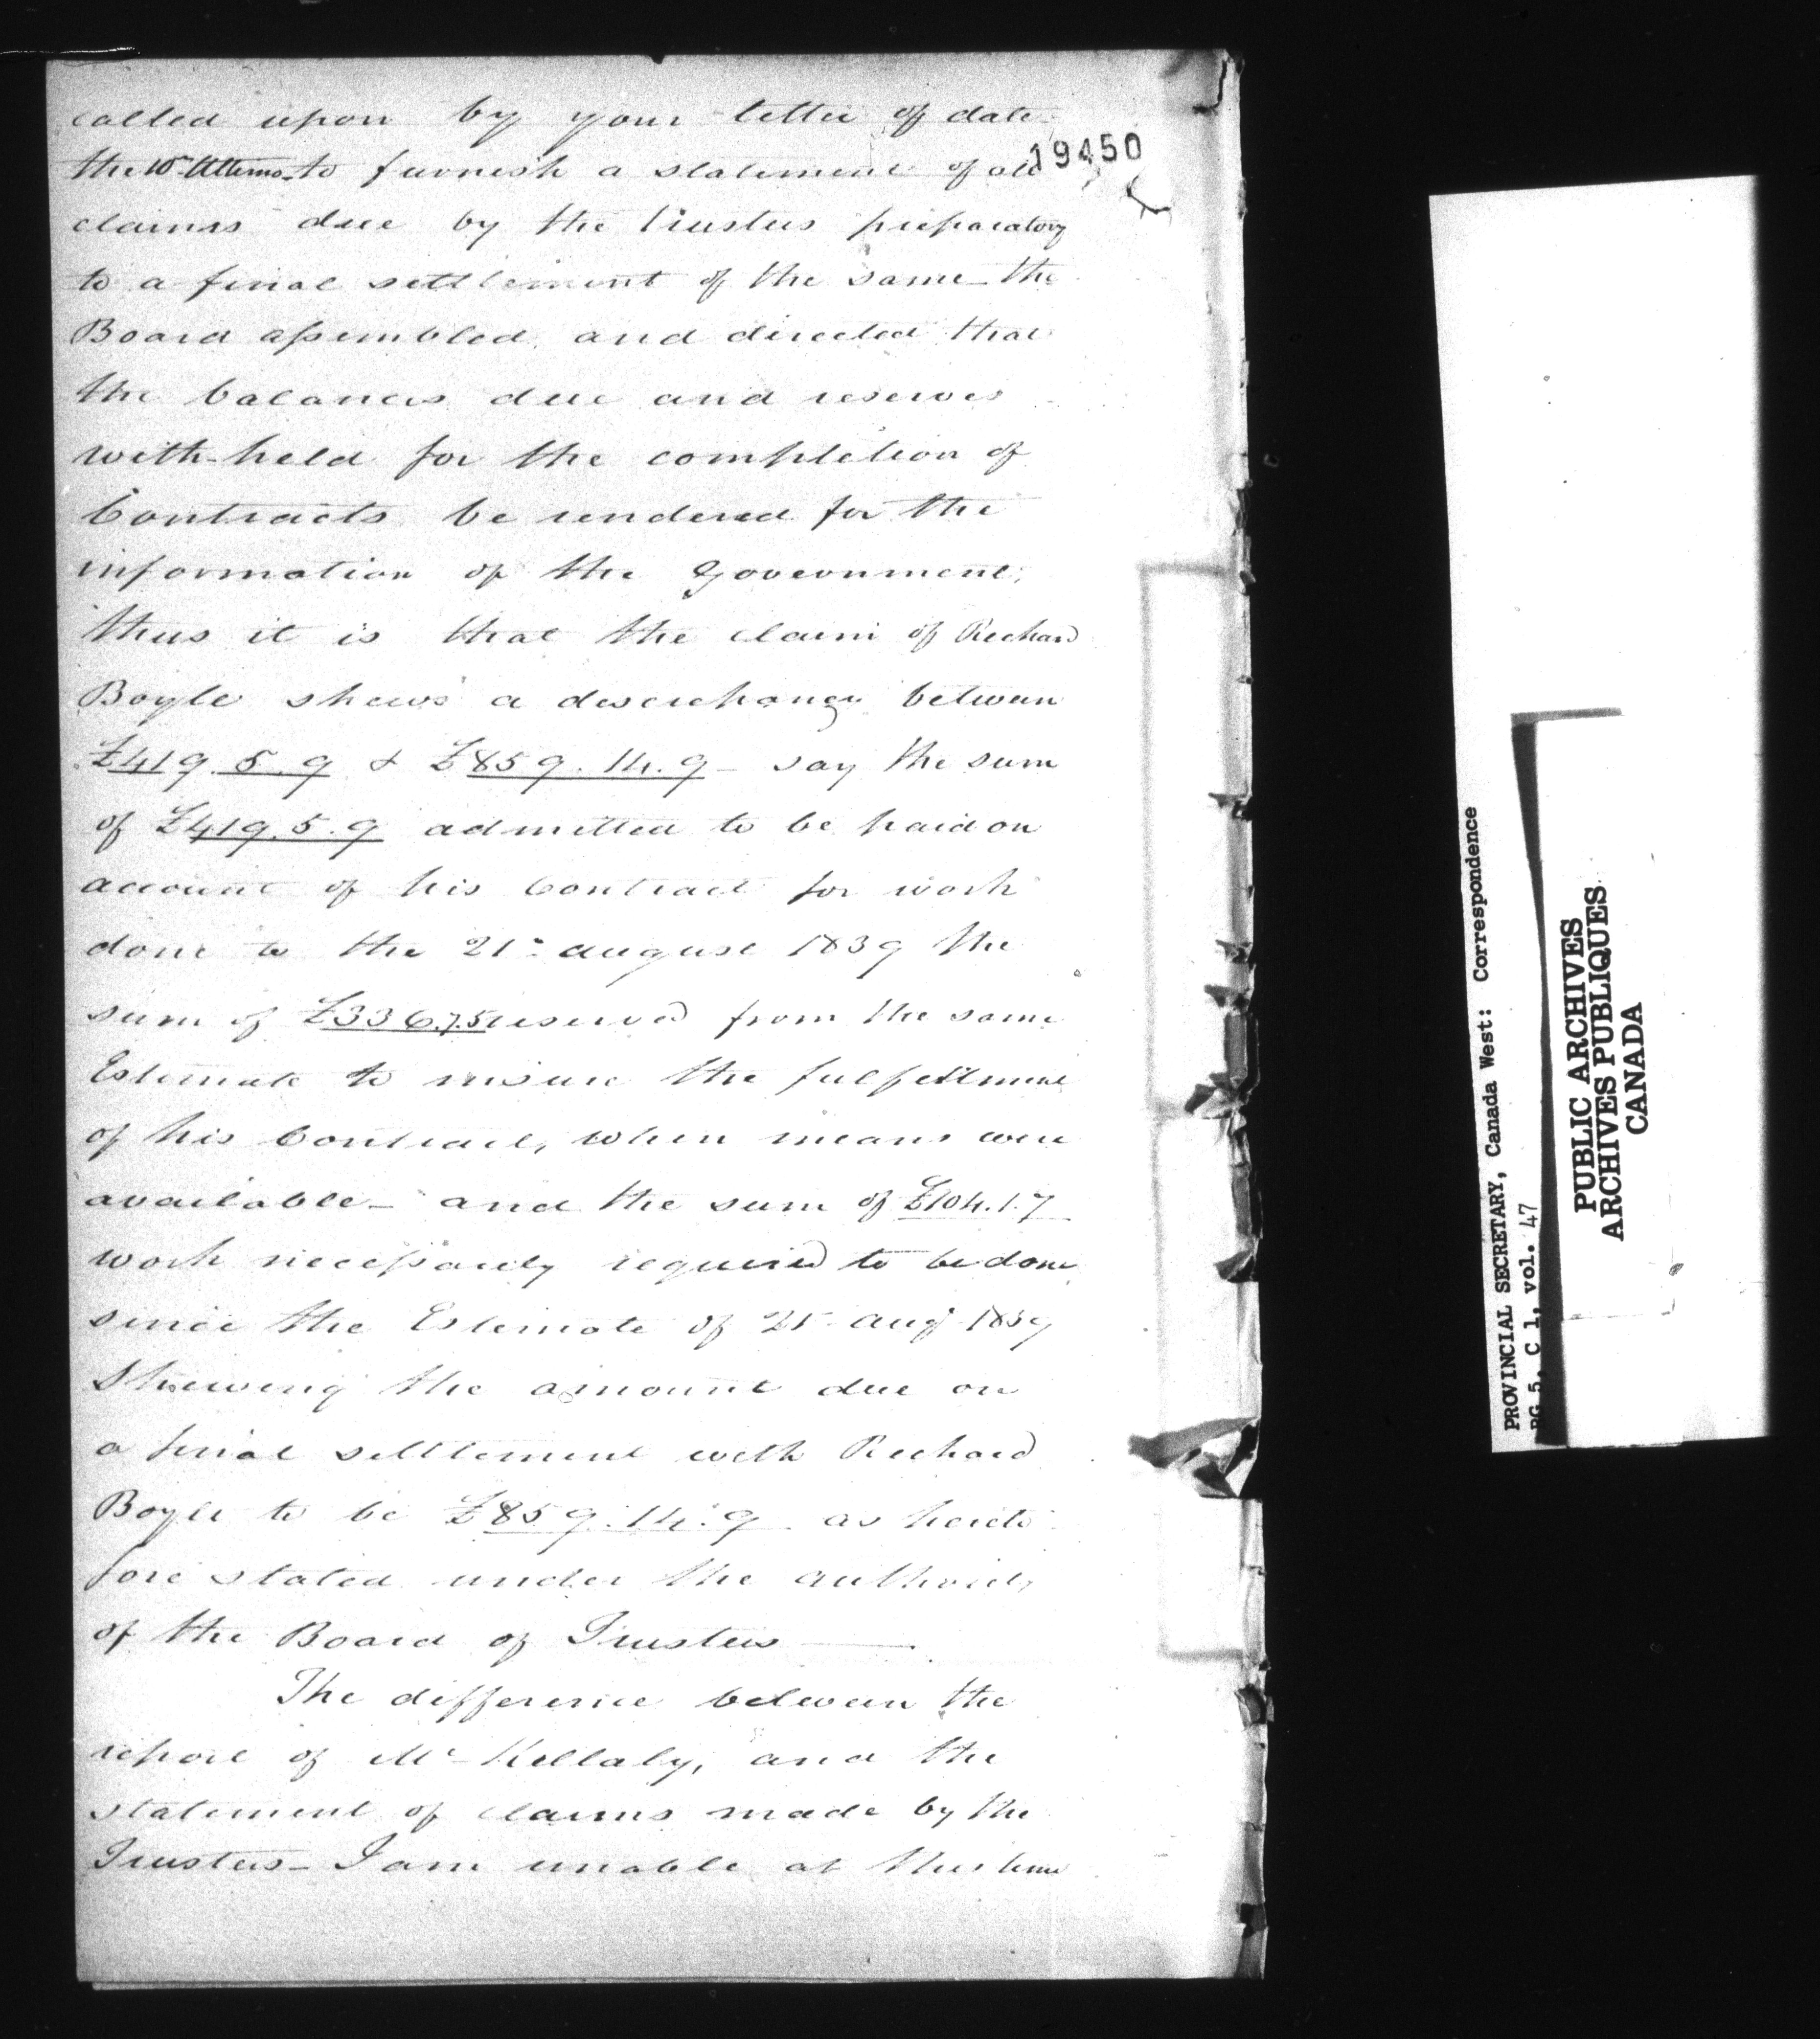 called upon by your letter of date
19450
the 15th Ultimo to furnish a statement of all
claims due by the Trustees preparatory
to a final settlement of the same – the
Board assembled and directed that
the balances due and reserves
with-held for the completion of
Contracts be rendered for the
information of the Government;
thus it is that the claim of Richard
Boyle shews a descrepancy between
£419.5.9 & £859.14.9 – say the sum
of £419.5.9 admitted to be paid on
account of his Contract for work
done to the 21st august 1839 the
sum of £336.7.5 reserved from the same
Estimate to insure the fulfillment
of his Contract, when means were
available – and the sum of £104.1.7
work necessarily required to be done
since the Estimate of 21st Augt 1839
Shewing the amount due on
a final settlement with Richard
Boyle to be £859.14.9 as hereto
fore stated under the authority
of the Board of Trustees —
The difference between the
report of Mr Killaly, and the
statement of claims made by the
Trustees – I am unable at this time
PROVINCIAL SECRETARY, Canada West: Correspondence
RG 5, C 1, vol. 47
PUBLIC ARCHIVES
ARCHIVES PUBLIQUES
CANADA